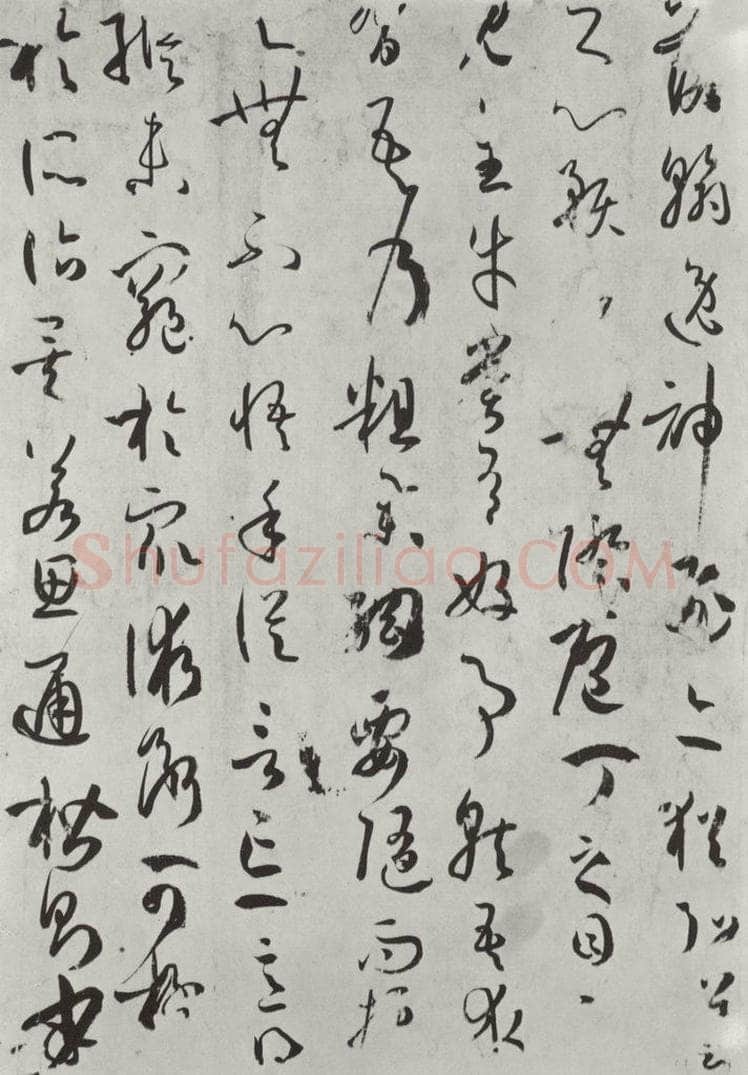 落翰逸神飛亦猶弘羊
之心預乎無際庖丁之目不
見全牛嘗有好事就吾求
習吾乃粗舉綱要隨而授
之無不心悟手從言忘意得
縱未窮於眾術斷可極
於所詣矣若思通楷則少
Shufaziliao.COM